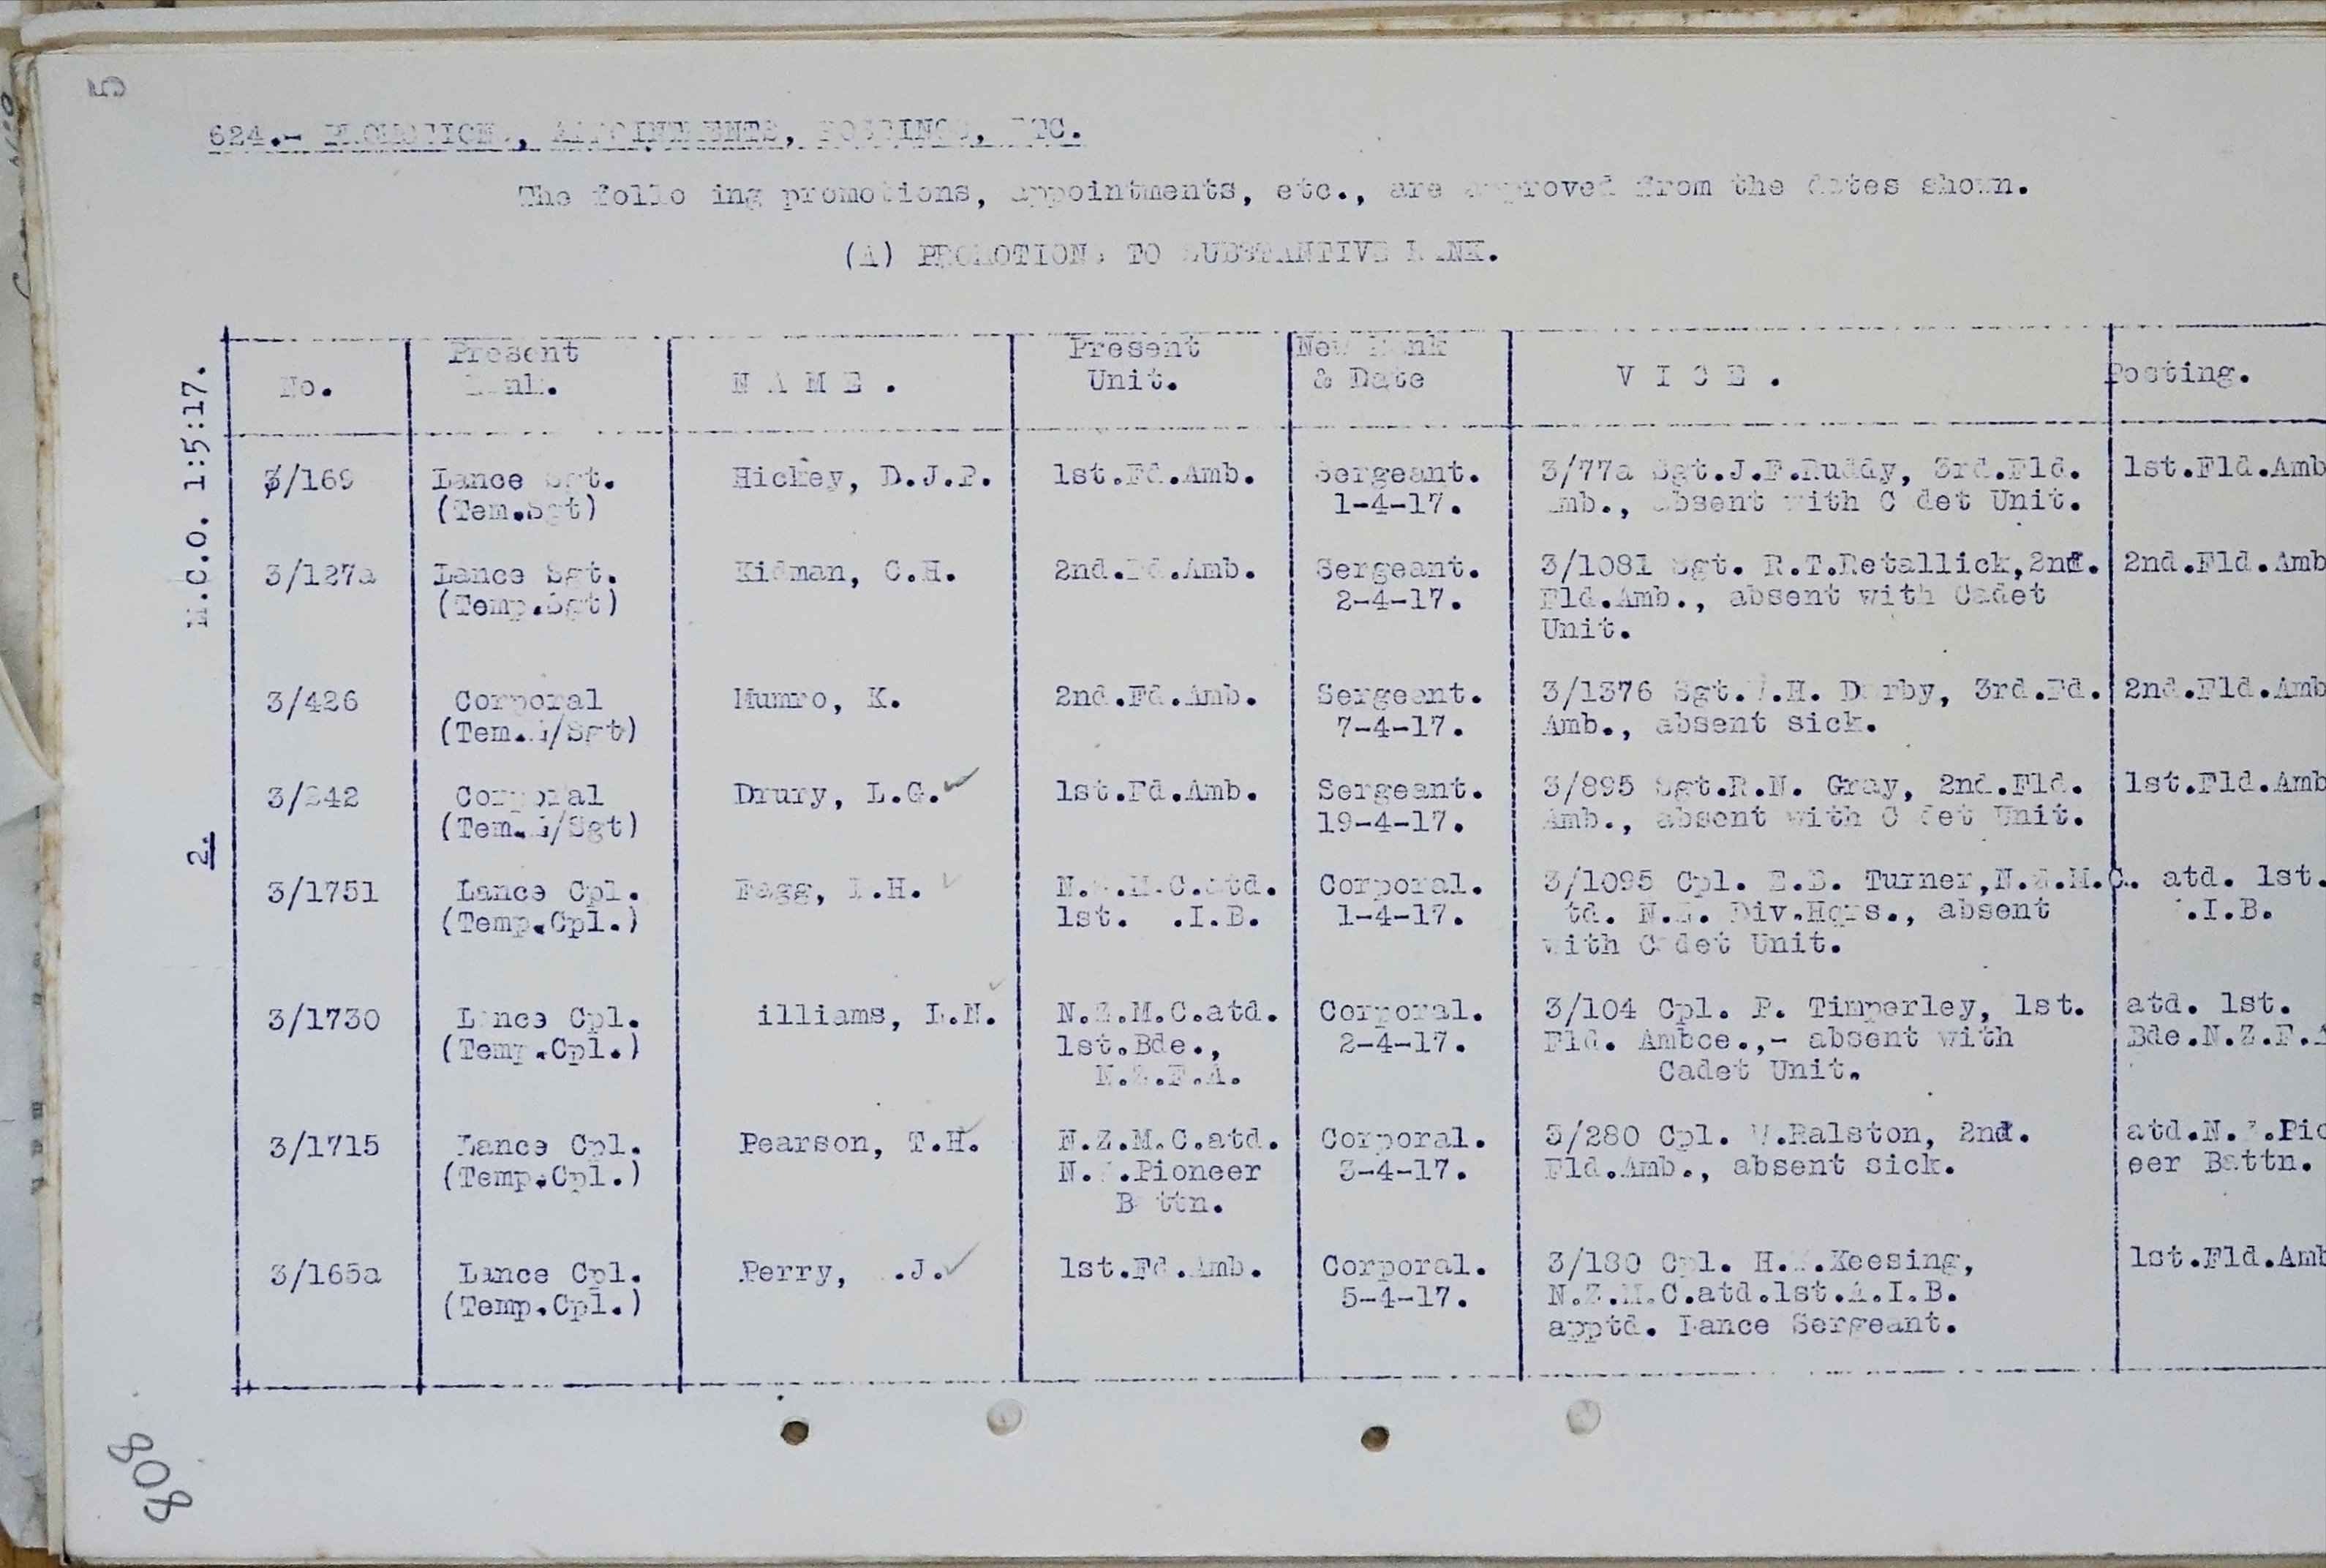 5
624.- PROMOTIONS, APPOINTMENTS, POSTINGS, ETC.
The following promotions, appointments, etc., are approved from the dates shown.
(A) PROMOTIONS TO SUBSTANTIVE RANK.
N.C.O. 1:5:17.
2.
No. Present Rank. N A M E . Present Unit. New Rank & Date V I C E . Posting.
3/169 Lance Sgt. Hickey, D.J.P. 1st.Fd.Amb. Sergeant. 3/77a Sgt.J.F.Ruddy, 3rd.Fld. 1st.Fld.Amb
(Tem.Sgt) 1-4-17. Amb., absent with Cadet Unit.
3/127a Lance Sgt. Kidman, C.H. 2nd.Fd.Amb. Sergeant. 3/1081 Sgt. R.T.Retallick,2nd. 2nd.Fld.Amb
(Temp.Sgt) 2-4-17. Fld.Amb., absent with Cadet
Unit.
3/426 Corporal Munro, K. 2nd.Fd.Amb. Sergeant. 3/1376 Sgt. .H. Darby, 3rd.Fd. 2nd.Fld.Amb
(Tem.L/Sgt) 7-4-17. Amb., absent sick.
3/242 Corporal Drury, L.G. 1st.Fd.Amb. Sergeant. 3/895 Sgt.R.N. Gray, 2nd.Fld. 1st.Fld.Amb
(Tem.L/Sgt) 19-4-17. Amb., absent with Cadet Unit.
3/1751 Lance Cpl. Fagg, .H. N.Z.M.C.atd. Corporal. 3/1095 Cpl. E.B. Turner,N.Z.M.C. atd. 1st.
(Temp.Cpl.) 1st. .I.B. 1-4-17. atd. N.Z. Div.Hqrs., absent .I.B.
with Cadet Unit.
3/1730 Lance Cpl. illiams, L.N. N.Z.M.C.atd. Corporal. 3/104 Cpl. P. Timperley, 1st. atd. 1st.
(Temp.Cpl.) 1st.Bde., 2-4-17. Fld. Ambce.,- absent with Bde.N.Z.F.A
N.Z.F.A. Cadet Unit.
3/1715 Lance Cpl. Pearson, T.H. N.Z.M.C.atd. Corporal. 3/280 Cpl. W.Ralston, 2nd. atd.N.Z.Pio
(Temp.Cpl.) N.Z.Pioneer 3-4-17. Fld.Amb., absent sick. eer Battn.
Battn.
3/165a Lance Cpl. Perry, .J. 1st.Fd.Amb. Corporal. 3/180 Cpl. H. .Keesing, 1st.Fld.Amb
(Temp.Cpl.) 5-4-17. N.Z.M.C.atd.1st.A.I.B.
apptd. Lance Sergeant.
808